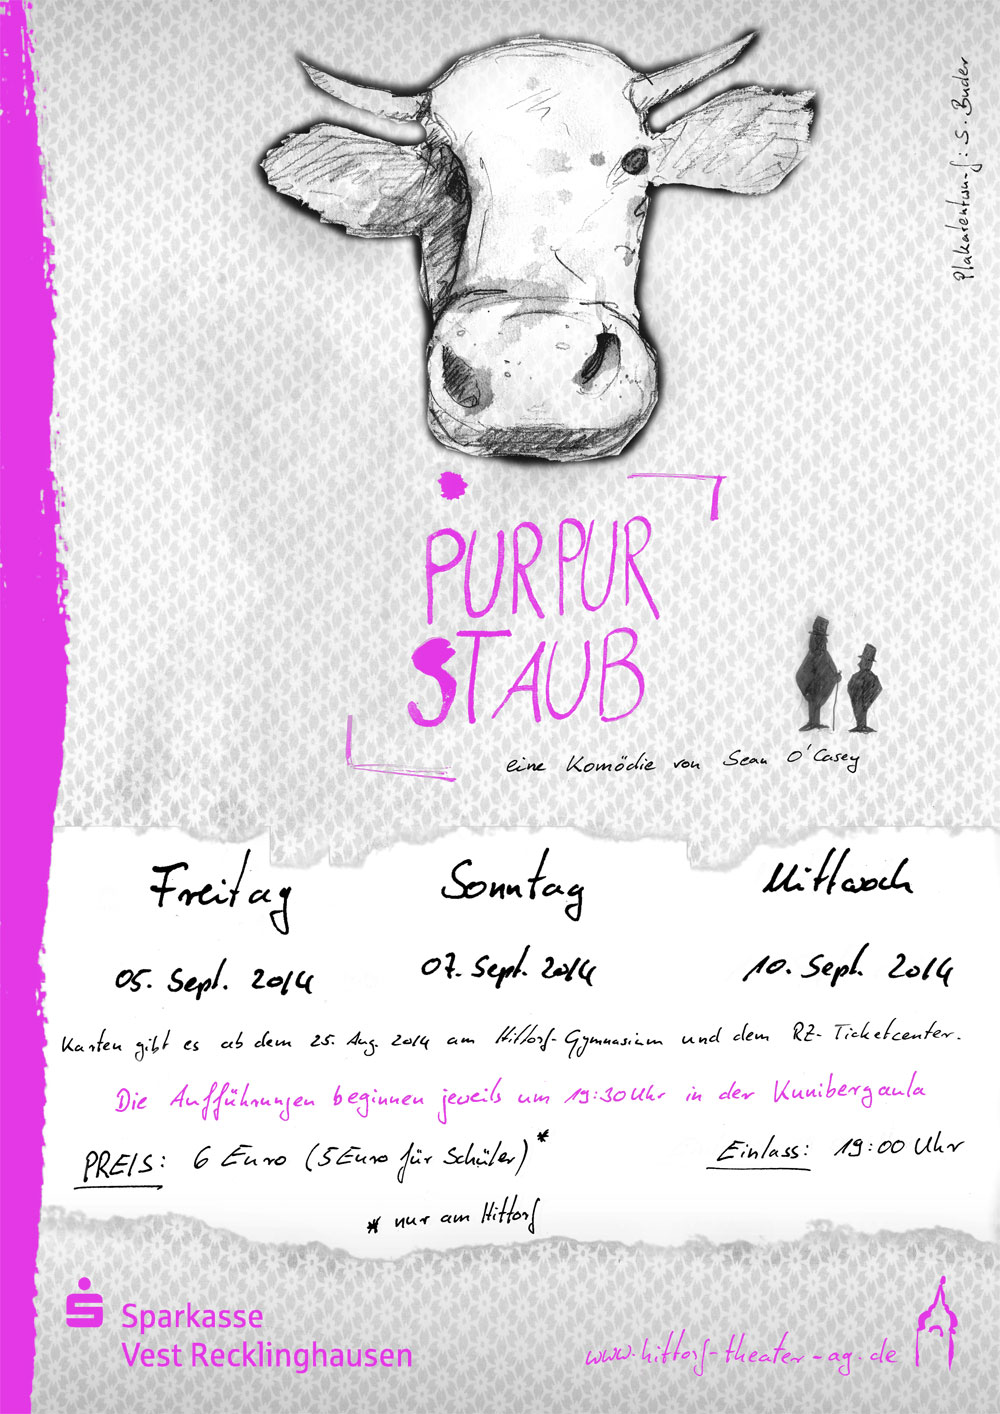 Plakatentwurf: S. Buder
PURPUR
STAUB
eine Komödie von Sean O'Casey
Freitag
Sonntag
Mittwoch
05. Sept. 2014
07. Sept. 2014
10. Sept. 2014
Karten gibt es ab dem 25. Aug. 2014 am Hittorf-Gymnasium und dem RZ-Ticketcenter.
Die Aufführungen beginnen jeweils um 19:30 Uhr in der Kunibergaula
PREIS: 6 Euro (5 Euro für Schüler)*
Einlass: 19:00 Uhr
* nur am Hittorf
Sparkasse
Vest Recklinghausen
www.hittorf-theater-ag.de